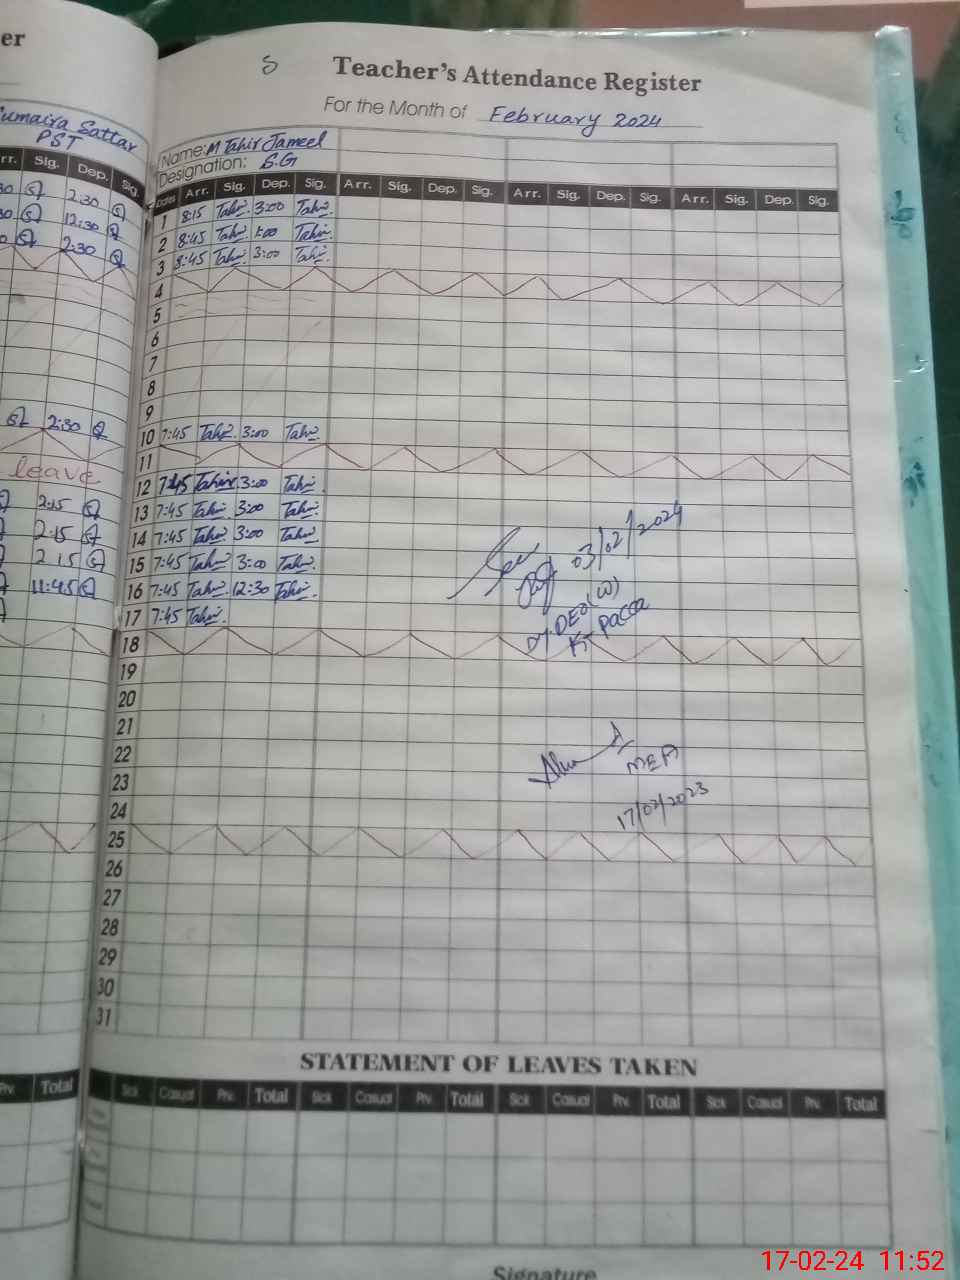 er
Sumaira Sattar
PST
rr. Sig. Dep. Sig.
2:30
12:30
2:30
2:30
leave
2:15
2:15
2:15
11:45
Prv. Total
Teacher's Attendance Register
For the Month of February 2024
Name: M Tahir Jameel
Designation: S.G
Dates Arr. Sig. Dep. Sig. Arr. Sig. Dep. Sig. Arr. Sig. Dep. Sig. Arr. Sig. Dep. Sig.
1 8:15 Tahir 3:00 Tahir
2 8:45 Tahir 1:00 Tahir
3 8:45 Tahir 3:00 Tahir
4
5
6
7
8
9
10 7:45 Tahir 3:00 Tahir
11
12 7:45 Tahir 3:00 Tahir
13 7:45 Tahir 3:00 Tahir
14 7:45 Tahir 3:00 Tahir
15 7:45 Tahir 3:00 Tahir
16 7:45 Tahir 12:30 Tahir
17 7:45 Tahir
03/02/2024
Dy.DEO(W)
Kt Pacca
18
19
20
21
22
MEA
23
17/02/2023
24
25
26
27
28
29
30
31
STATEMENT OF LEAVES TAKEN
Sick Casual Prv. Total Sick Casual Prv. Total Sick Casual Prv. Total Sick Casual Prv. Total
Signature
17-02-24 11:52